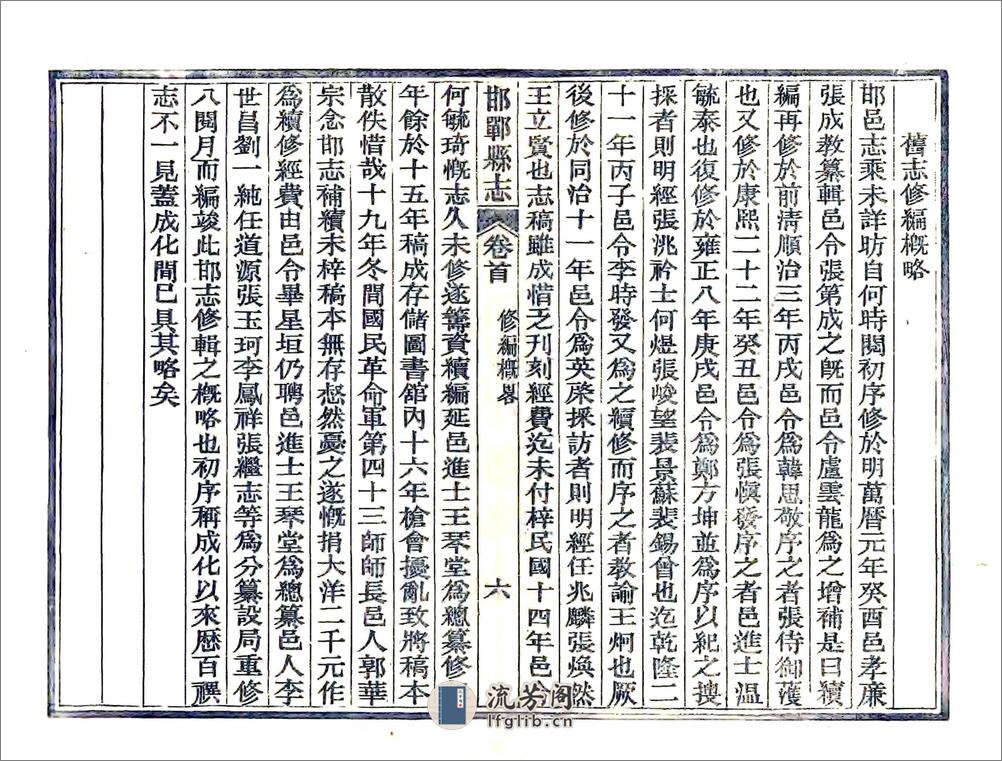 舊志修編概略
邯邑志乘未詳昉自何時閱初序修於明萬曆元年癸酉邑孝廉
張成教纂輯邑令張第成之既而邑令盧雲龍爲之增補是曰續
編再修於前清順治三年丙戌邑令爲韓思敬序之者張侍御蒦
也又修於康熙二十二年癸丑邑令爲張愼發序之者邑進士溫
毓泰也復修於雍正八年庚戌邑令爲鄭方坤並爲序以紀之搜
採者則明經張洮衿士何煜張峻望裴景蘇裴錫曾也迄乾隆二
十一年丙子邑令李時發又爲之續修而序之者教諭王炯也厥
後修於同治十一年邑令爲英棨採訪者則明經任兆麟張煥然
王立賢也志稿雖成惜乏刊刻經費迄未付梓民國十四年邑令
邯鄲縣志 卷首 修編概畧 六
何毓琦慨志久未修遂籌資續編延邑進士王琴堂爲總纂修
年餘於十五年稿成存儲圖書舘內十六年槍會擾亂致將稿本
散佚惜哉十九年冬間國民革命軍第四十三師師長邑人郭華
宗念邯志補續未梓稿本無存惄然憂之遂慨捐大洋二千元作
爲續修經費由邑令畢星垣仍聘邑進士王琴堂爲總纂邑人李
世昌劉一純任道源張玉珂李鳳祥張繼志等爲分纂設局重修
八閱月而編竣此邯志修輯之概略也初序稱成化以來歷百禩
志不一見蓋成化間已具其略矣
流芳閣
lfglib.cn